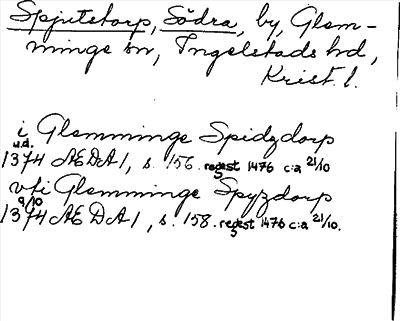 Spjutstorp, Södra, by, Glem-
minge sn, Ingelstads hd,
Krist. l.
i Glemminge Spidzdorp
u.d.
1374 ÆDA 1, s. 156. regest 1476 c:a 21/10
vti Glemminge Spyzdorp
9/10
1374 ÆDA 1, s. 158. regest 1476 c:a 21/10.